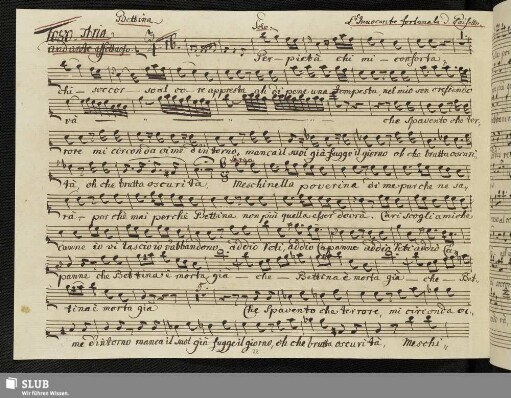 Bettina L'Innocente fortunata
Aria
andante affettuoso Solo
Per pietà chi mi conforta,
chi soccorso al core appresta ah di pene una tempesta, nel mio sen crescendo
và che spavento che ter,
rore mi circonda oimè d'intorno, manca il suol già fugge il giorno oh che brutta oscuri,
tà, oh che brutta oscurità. Meschinella poverina di me pur che ne sa,
rà perchè mai perchè Bettina non più quella esser dovrà. Cari scogli amiche
Canne io vi lascio io v'abbandono, addio addio Capanne addio addio Ca
panne che Bettina è morta già che Bettina è morta già che Bet,
tina è morta già che spavento che terrore, mi circonda oi,
mè d'intorno manca il suol già fugge il giorno, oh che brutta oscurità. Meschi,,
SLUB
Wir führen Wissen.